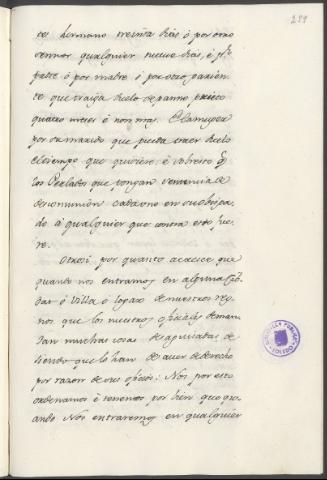 289
ces hermano treinta dias ó por otro
sennor qualquier nueve dias, é por
patre ó por matre ó por otro parien-
te que traiga duelo de panno prieto
quatro meses é non mas. E la muger
por su marido que pueda traer duelo
el tiempo que quisiere, é sobresto
los Perlados que pongan sentencia de
descomunion cada uno en su obispa-
do á qualquier que contra esto fue-
re.
Otrosi por quanto acaesce que
quando nos entramos en alguna Cib-
dat é Villa é logar de nuestros reg-
nos que los nuestros oficiales deman-
dan muchas cosas desaguisadas di-
ciendo que lo han de aver de derecho
por razon de sus oficios: Nos por esto
ordenamos é tenemos por bien que qu-
ando Nos entraremos en qualquier
BIBLIOTECA PUBLICA
TOLEDO